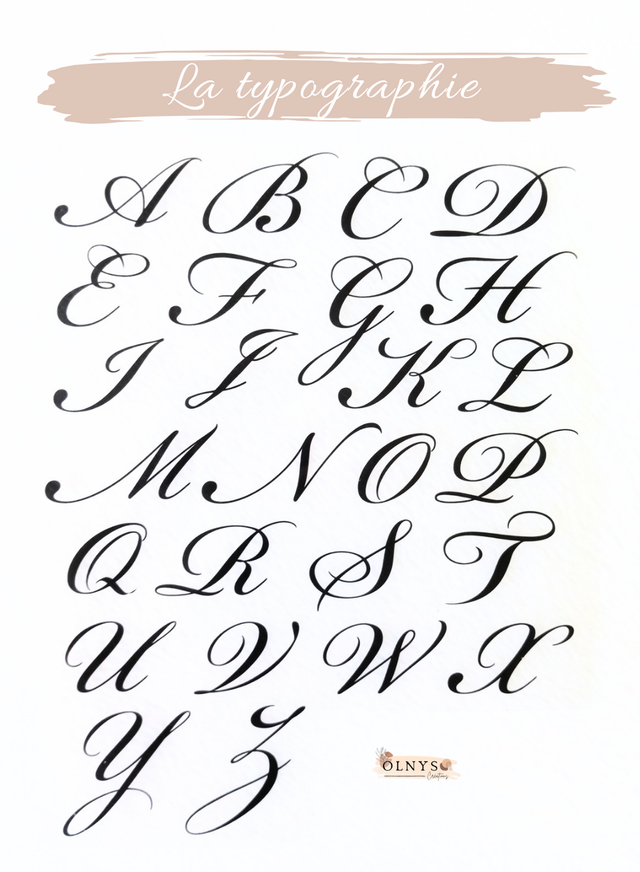 La typographie
A B C D
E F G H
I J K L
M N O P
Q R S T
U V W X
Y Z
OLNYS
Créations